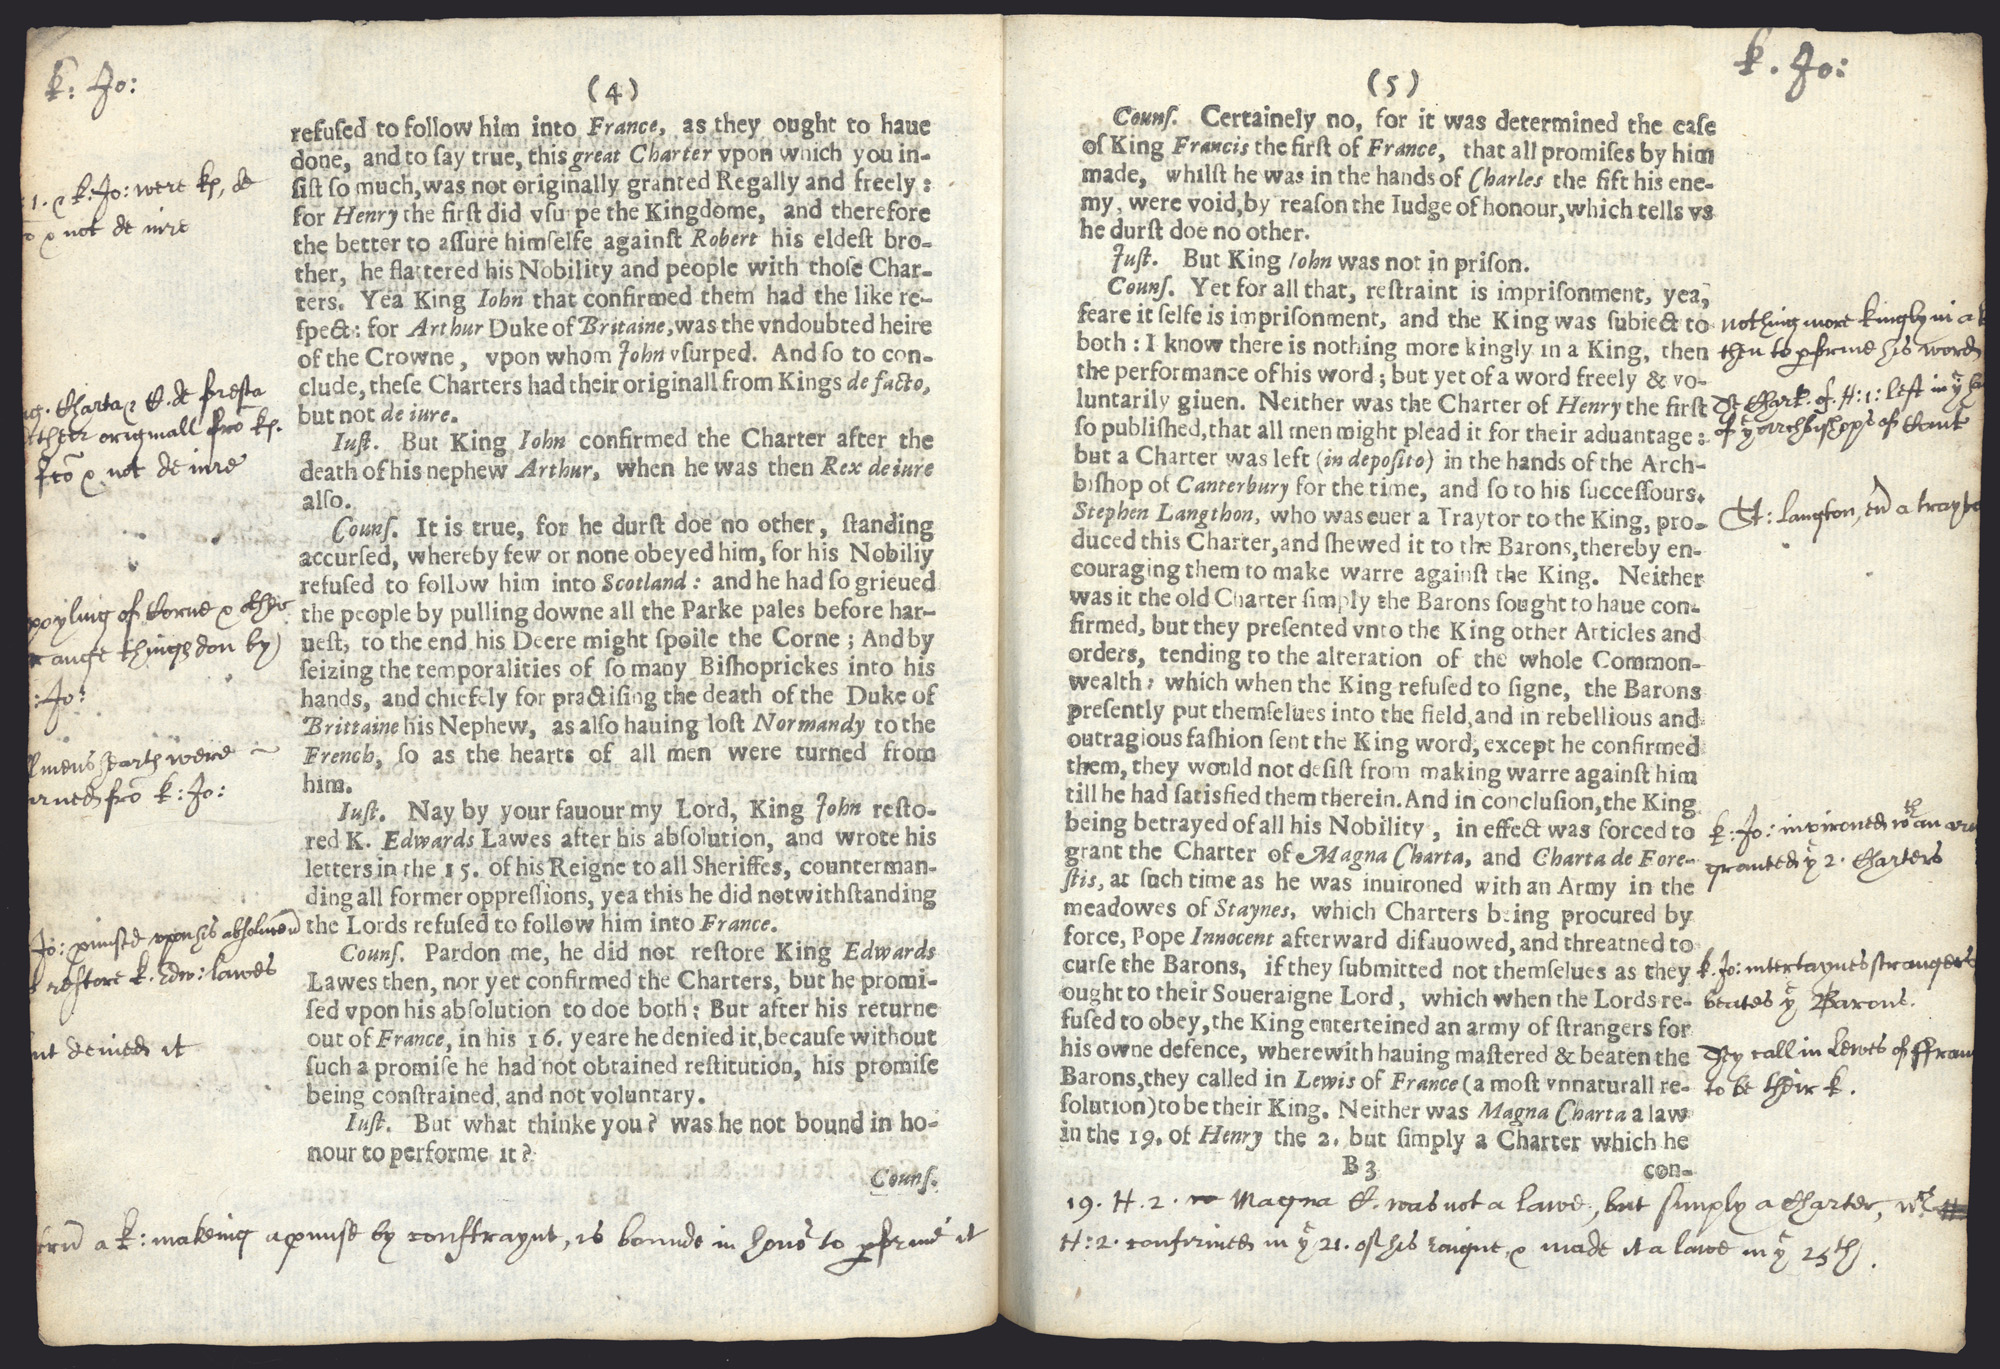 k: Jo:
(4)
refuſed to follow him into France, as they ought to haue
done, and to ſay true, this great Charter vpon which you in-
ſiſt ſo much, was not originally granted Regally and freely:
for Henry the firſt did vſurpe the Kingdome, and therefore
the better to aſſure himſelfe againſt Robert his eldeſt bro-
ther, he flattered his Nobility and people with thoſe Char-
ters. Yea King Iohn that confirmed them had the like re-
ſpect: for Arthur Duke of Britaine, was the vndoubted heire
of the Crowne, vpon whom John vſurped. And ſo to con-
clude, theſe Charters had their originall from Kings de facto,
but not de iure.
Iuſt. But King Iohn confirmed the Charter after the
death of his nephew Arthur, when he was then Rex de iure
alſo.
Counſ. It is true, for he durſt doe no other, ſtanding
accurſed, whereby few or none obeyed him, for his Nobiliy
refuſed to follow him into Scotland: and he had ſo grieued
the people by pulling downe all the Parke pales before har-
ueſt, to the end his Deere might ſpoile the Corne; And by
ſeizing the temporalities of ſo many Biſhoprickes into his
hands, and chiefely for practiſing the death of the Duke of
Brittaine his Nephew, as alſo hauing loſt Normandy to the
French, ſo as the hearts of all men were turned from
him.
Iuſt. Nay by your fauour my Lord, King John reſto-
red K. Edwards Lawes after his abſolution, and wrote his
letters in the 15. of his Reigne to all Sheriffes, counterman-
ding all former oppreſſions, yea this he did notwithſtanding
the Lords refuſed to follow him into France.
Counſ. Pardon me, he did not reſtore King Edwards
Lawes then, nor yet confirmed the Charters, but he promi-
ſed vpon his abſolution to doe both: But after his returne
out of France, in his 16. yeare he denied it, becauſe without
ſuch a promiſe he had not obtained reſtitution, his promiſe
being conſtrained, and not voluntary.
Iuſt. But what thinke you? was he not bound in ho-
nour to performe it?
Counſ.
1. & k: Jo: were kſ, de
& not de iure
Charta & C. de foresta
ther originall frō kſ.
fcō & not de iure
poyling of Corne & othr
range things don by
: Jo:
mens hearts were
urned frō k: Jo:
Jo: pmised upon his absolucōn
restore k. Edw: lawes
ut denied it
a k: makeing a pmise by constraynt, is bounde in honor to pforme it
k. Jo:
(5)
Counſ. Certainely no, for it was determined the caſe
of King Francis the firſt of France, that all promiſes by him
made, whilſt he was in the hands of Charles the fift his ene-
my, were void, by reaſon the Iudge of honour, which tells vs
he durſt doe no other.
Juſt. But King Iohn was not in priſon.
Counſ. Yet for all that, reſtraint is impriſonment, yea,
feare it ſelfe is impriſonment, and the King was ſubiect to
both: I know there is nothing more kingly in a King, then
the performance of his word; but yet of a word freely & vo-
luntarily giuen. Neither was the Charter of Henry the firſt
ſo publiſhed, that all men might plead it for their aduantage:
but a Charter was left (in depoſito) in the hands of the Arch-
biſhop of Canterbury for the time, and ſo to his ſucceſſours.
Stephen Langthon, who was euer a Traytor to the King, pro-
duced this Charter, and ſhewed it to the Barons, thereby en-
couraging them to make warre againſt the King. Neither
was it the old Charter ſimply the Barons ſought to haue con-
firmed, but they preſented vnto the King other Articles and
orders, tending to the alteration of the whole Common-
wealth: which when the King refuſed to ſigne, the Barons
preſently put themſelues into the field, and in rebellious and
outragious faſhion ſent the King word, except he confirmed
them, they would not deſiſt from making warre againſt him
till he had ſatisfied them therein. And in concluſion, the King
being betrayed of all his Nobility, in effect was forced to
grant the Charter of Magna Charta, and Charta de Fore-
ſtis, at ſuch time as he was inuironed with an Army in the
meadowes of Staynes, which Charters being procured by
force, Pope Innocent afterward diſauowed, and threatned to
curſe the Barons, if they ſubmitted not themſelues as they
ought to their Soueraigne Lord, which when the Lords re-
fuſed to obey, the King enterteined an army of ſtrangers for
his owne defence, wherewith hauing maſtered & beaten the
Barons, they called in Lewis of France (a moſt vnnaturall re-
ſolution) to be their King. Neither was Magna Charta a law
in the 19. of Henry the 2. but ſimply a Charter which he
B 3
con-
nothing more kingly in a k
then to pforme his word
Chart. of H: 1: left in yͤ
of yͤ Archbishops of Cant
St: langton, a trayto
k: Jo: invironed wth an
granted yͤ 2. Charters
k. Jo: intertaynes strangers
beates yͤ Barons.
They call in Lewes of ffran
to be their k.
19. H. 2. Magna C. was not a lawe, but simply a Charter, wch
H: 2. confirmed in yͤ 21. of his raigne, & made it a lawe in yͤ 25th.